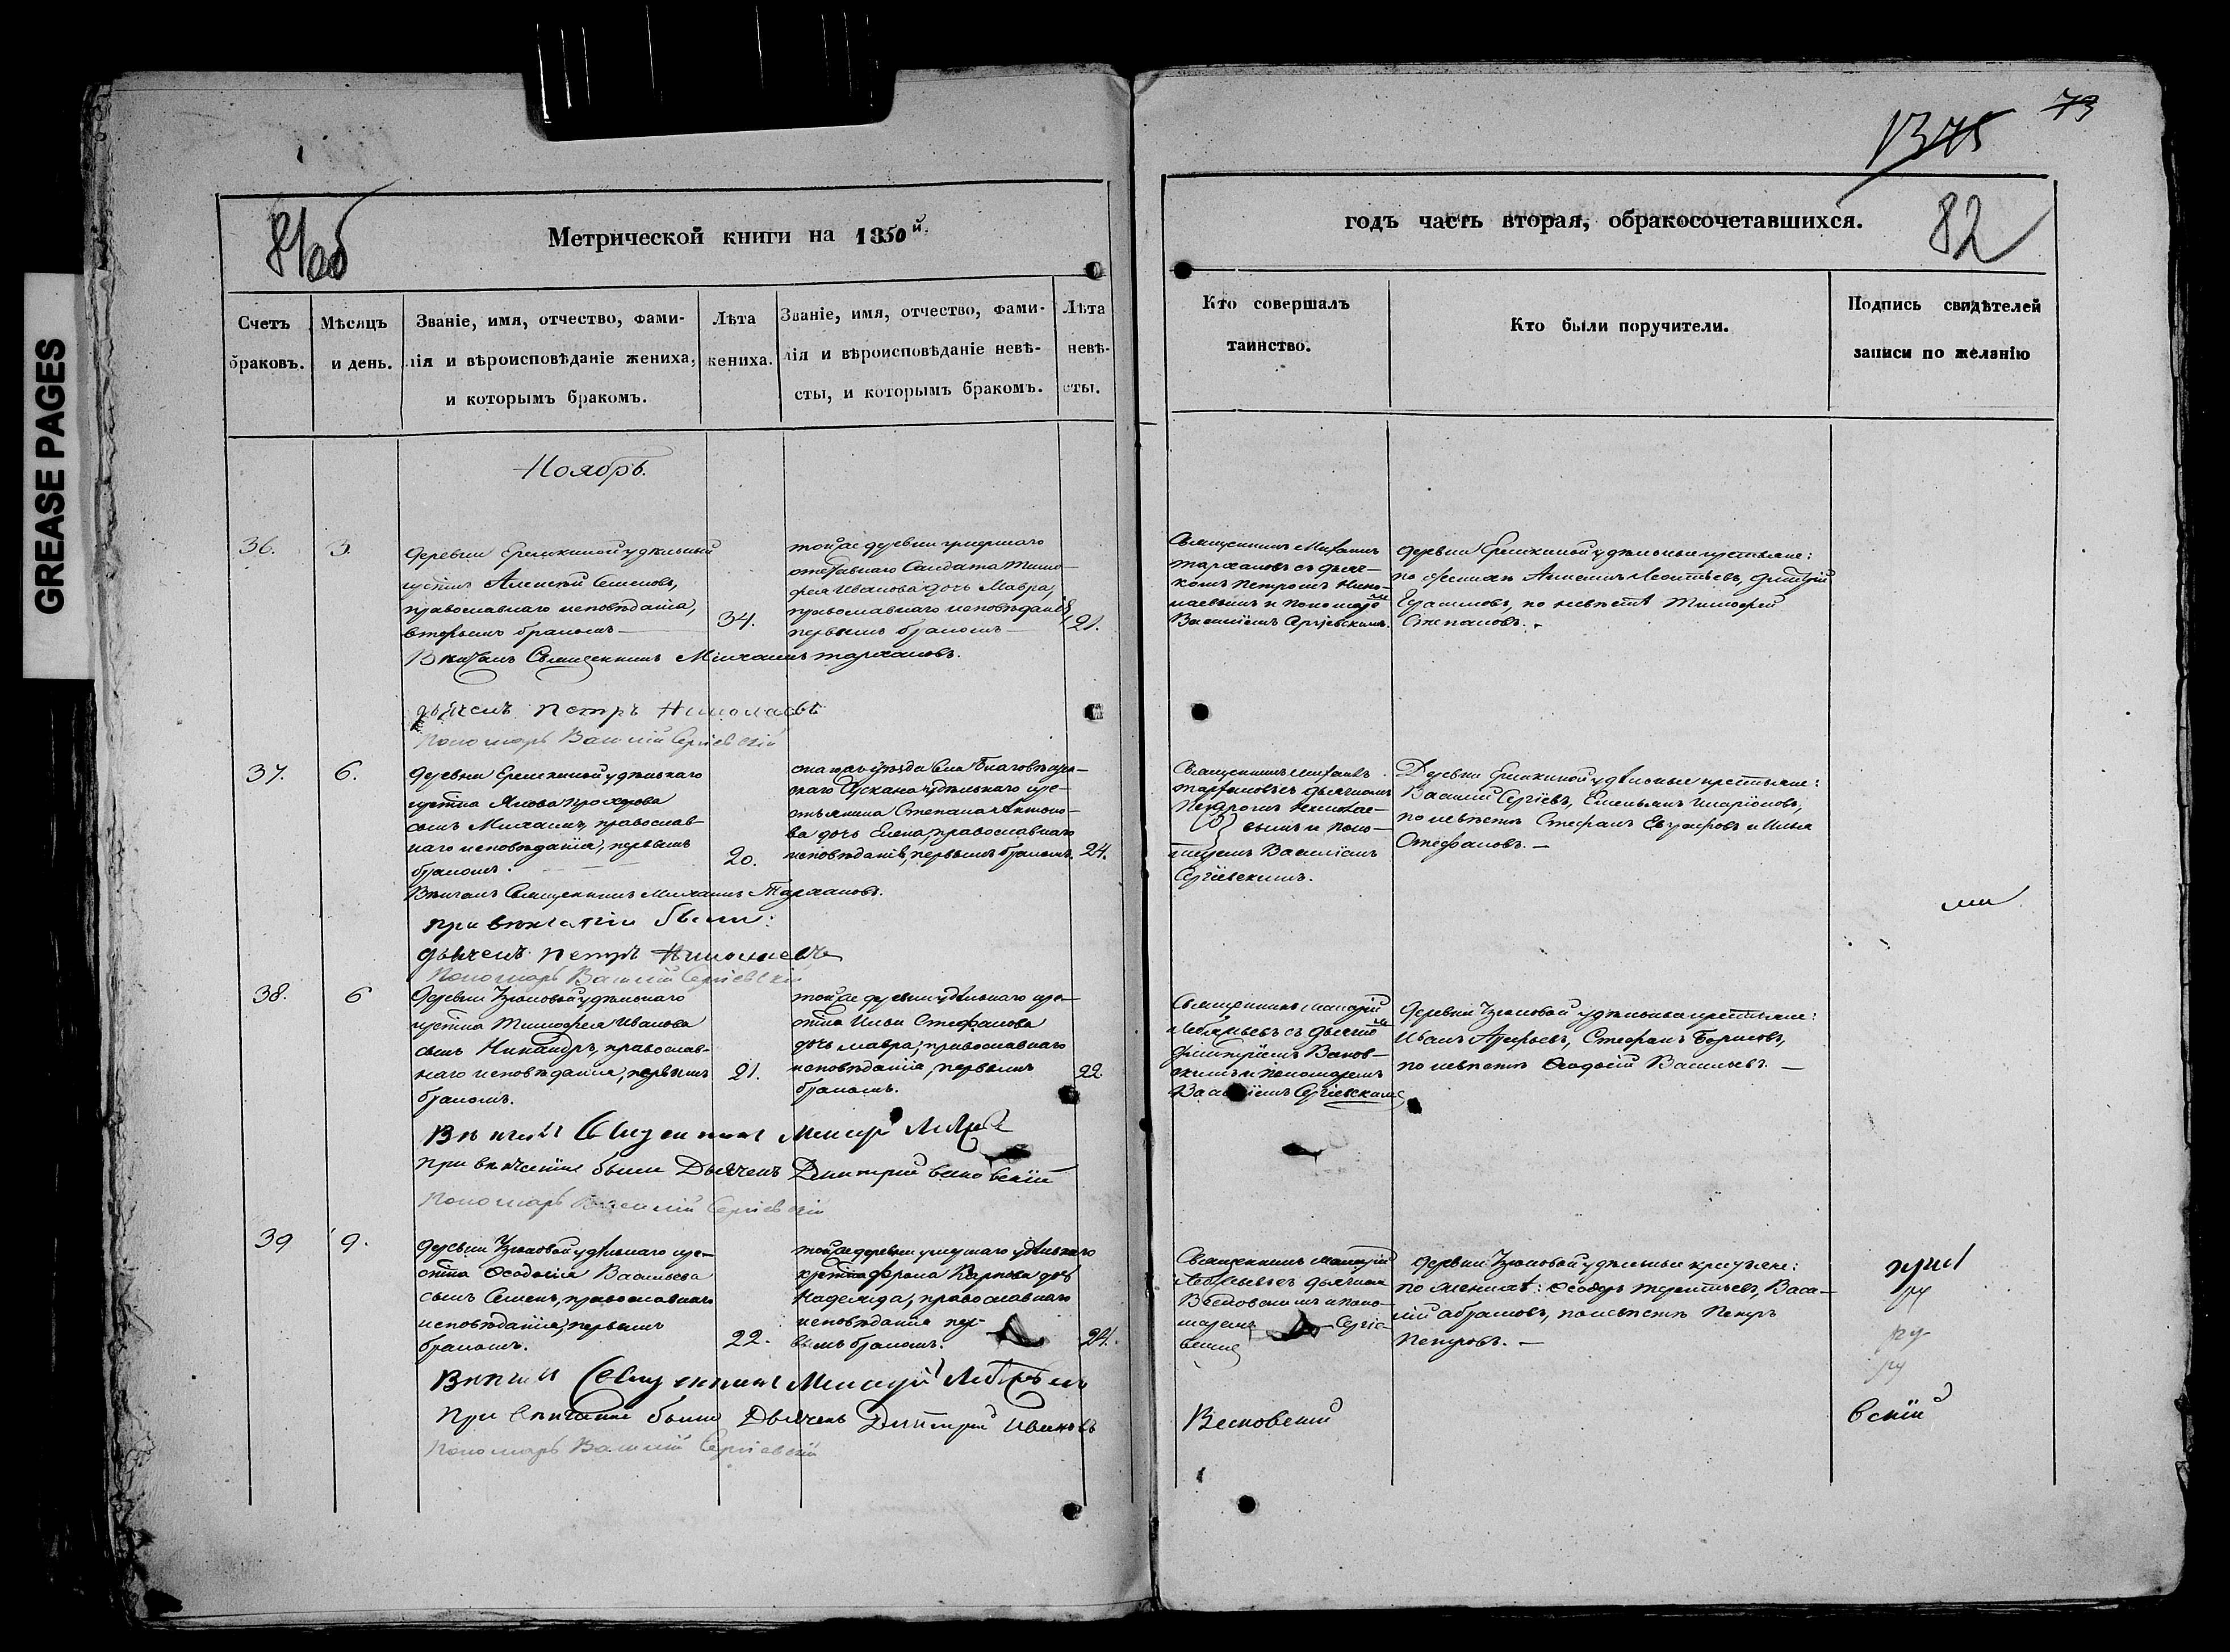 GREASE PAGES
73
1375
81об
Метрической книги на 1850й.
годъ часть вторая, обракосочетавшихся.
82
Счетъ браковъ.
Мѣсяцъ и день.
Званіе, имя, отчество, фами-
лія и вѣроисповѣданіе жениха,
и которымъ бракомъ.
Лѣта
жениха.
Званіе, имя, отчество, фами-
лія и вѣроисповѣданіе невѣ-
сты, и которымъ бракомъ.
Лѣта
невѣ-
сты.
Кто совершалъ
таинство.
Кто были поручители.
Подпись свидѣтелей
записи по желанію
Ноябрь.
36.
3.
деревни Еремкиной удѣльный
Алексей Семеновъ,
православнаго исповѣданія,
вторымъ бракомъ
34.
тойже деревни
отставнаго Салдата Тимо-
фея Иванова дочь Мавра,
православнаго исповѣданія,
первымъ бракомъ
21.
Священникъ Михаилъ
Тархановъ съ дьяч-
комъ Петромъ Нико-
лаевымъ и пономаре
Василіемъ Сергіевскимъ.
деревни Еремкиной удѣльные крестьяне:
по женихѣ Алексей Леонтьевъ, Дмитрій
Герасимовъ, по невѣстѣ Тимофей
Степановъ.
Вѣнчалъ Священникъ Михаилъ Тархановъ.
дьячекъ Петръ Николаевъ
Пономарь Василій Сергіевскій
37.
6.
деревни Еремкиной удѣльнаго
Якова Прохорова
сынъ Михаилъ, православ-
наго исповѣданія, первымъ
бракомъ.
20.
уѣзда села Благовѣщен-
скаго Сускана удѣльнаго кре-
стьянина Степана Антоно-
ва дочь Елена, православнаго
исповѣданія, первымъ бракомъ.
24.
Священникъ Михаилъ
Тархановъ съ дьячкомъ
Петромъ Николае-
вымъ и поно-
маремъ Василіемъ
Сергіевскимъ.
Деревни Еремкиной удѣльные крестьяне:
Василій Сергіевъ, Емельянъ Иларіоновъ,
по невѣстѣ Стефанъ Евграфовъ и Илья
Стефановъ.
Вѣнчалъ Священникъ Михаилъ Тархановъ.
при вѣнчаніи были:
дьячекъ Петръ Николаевъ
Пономарь Василій Сергіевскій
38.
6
деревни Узюковой удѣльнаго
Тимофея Иванова
сынъ Никандръ, православ-
наго исповѣданія, первымъ
бракомъ.
21.
тойже деревни удѣльнаго кре-
Ильи Стефанова
дочь Мавра, православнаго
исповѣданія, первымъ
бракомъ.
22.
Священникъ
съ дьячко
Димитріемъ
и пономаремъ
Василіемъ Сергіевскимъ
деревни Узюковой удѣльные крестьяне:
Иванъ Арефьевъ, Стефанъ Борисовъ,
по невѣстѣ Ѳеодосій Васильевъ.
Вѣнчалъ Священникъ
При вѣнчаніи были Дьячекъ Димитрий
Пономарь Василій Сергіевскій
39
9.
деревни Узюковой удѣльнаго кре-
Ѳеодосія Васильева
сынъ Семенъ, православнаго
исповѣданія, первымъ
бракомъ.
22.
тойже деревни удѣльнаго
Фрола Карпова дочь
Надежда, православнаго
исповѣданія пер-
вымъ бракомъ.
24.
Священникъ
дьячкомъ
и поно-
маремъ Сергіе-
деревни Узюковой удѣльные крестьяне:
по женихѣ: Ѳеодоръ Терентьевъ, Васи-
лій Абрамовъ, по невѣстѣ Петръ
Петровъ.
Вѣнчалъ Священникъ
При вѣнчаніи были Дьячекъ Дмитрий
Пономарь Василій Сергіевскій
вскій